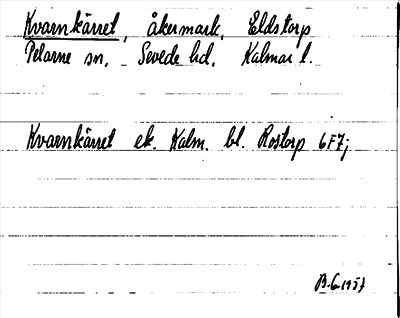 Kvarnkärret, åkermark, Eldstorp
Pelarne sn. Sevede hd. Kalmar l.
Kvarnkärret ek. Kalm. bl. Rostorp 6F7j
B.G. 1957